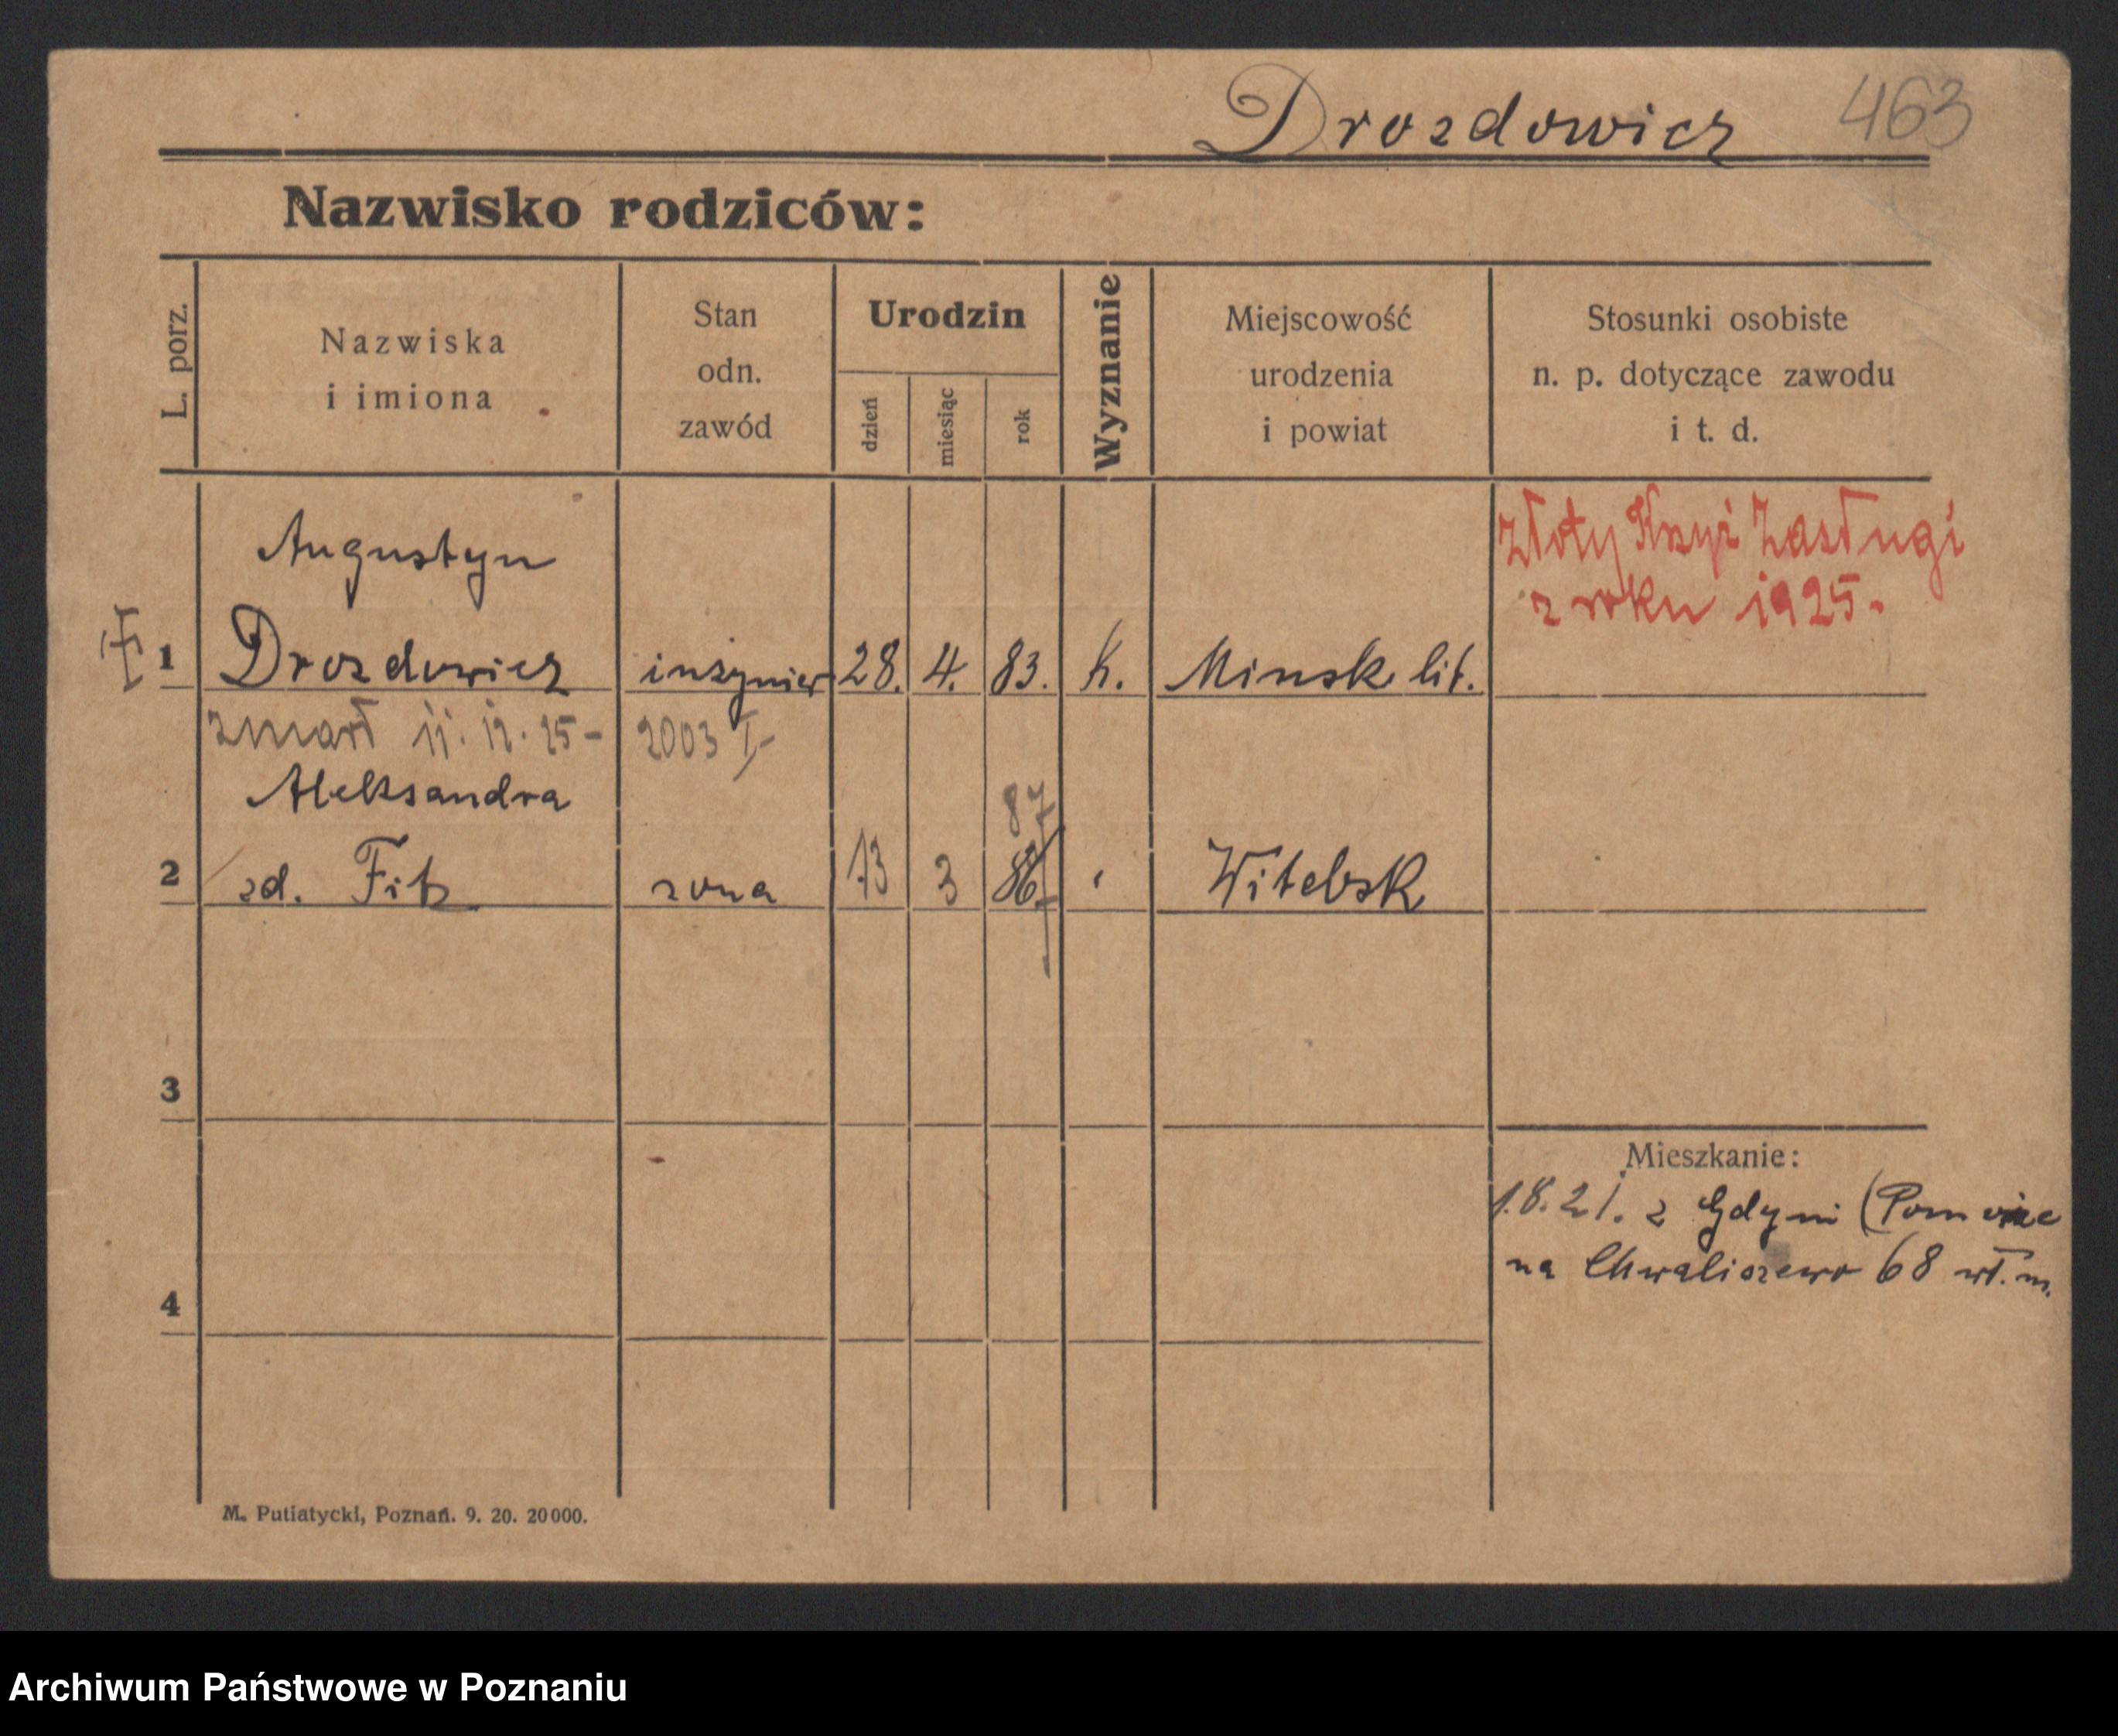 Drozdowicz 463
Nazwisko rodziców:
L. porz.
Nazwiska
i imiona
Stan
odn.
zawód
Urodzin
dzień
miesiąc
rok
Wyznanie
Miejscowość
urodzenia
i powiat
Stosunki osobiste
n. p. dotyczące zawodu
i t. d.
Złoty Krzyż Zasługi
z roku 1925.
Augustyn
1 Drozdowicz inżynier 28. 4. 83. k. Minsk lit.
zmarł 11. 12. 25 - 2003 I -
Aleksandra
87
2 zd. Fitz zona 13 3 86 Witebsk
3
Mieszkanie:
1.8.21. z Gdyni (Pomorze
na Chwaliszewo 68 wł. m.
4
M. Putiatycki, Poznań. 9. 20. 20000.
Archiwum Państwowe w Poznaniu